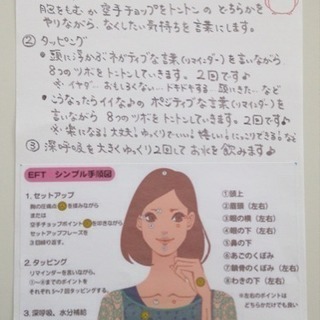 胸をもむ か 空手チョップをトントン の どちらかを
やりながら、なくしたい気持ちを言葉にします。
② タッピング
・頭に浮かぶネガティブな言葉(リマインダー)を言いながら
8つのツボをトントンしていきます。2回です♪
※イヤダ…おもしろくない…ドキドキする…頭にきた…など
・こうなったらイイな♪の ポジティブな言葉(リマインダー)を
言いながら 8つのツボをトントンしていきます。2回です♪
※楽になる!大丈夫!ゆっくりでいい!嬉しい!にっこりできる!など
③ 深呼吸を大きくゆっくり2回して お水を飲みます♪
EFT シンプル手順図
1. セットアップ
胸の圧痛点 を揉みながら
または
空手チョップポイント を叩きながら
セットアップフレーズを
3回繰り返す。
2. タッピング
リマインダーを言いながら、
①〜⑧までのポイントを
それぞれ5〜7回タッピングする。
3. 深呼吸、水分補給
①頭上
②眉頭(左右)
③眼の横(左右)
④眼の下(左右)
⑤鼻の下
⑥あごのくぼみ
⑦鎖骨のくぼみ(左右)
⑧わきの下(左右)
※左右のポイントは
どちらかだけでも良い